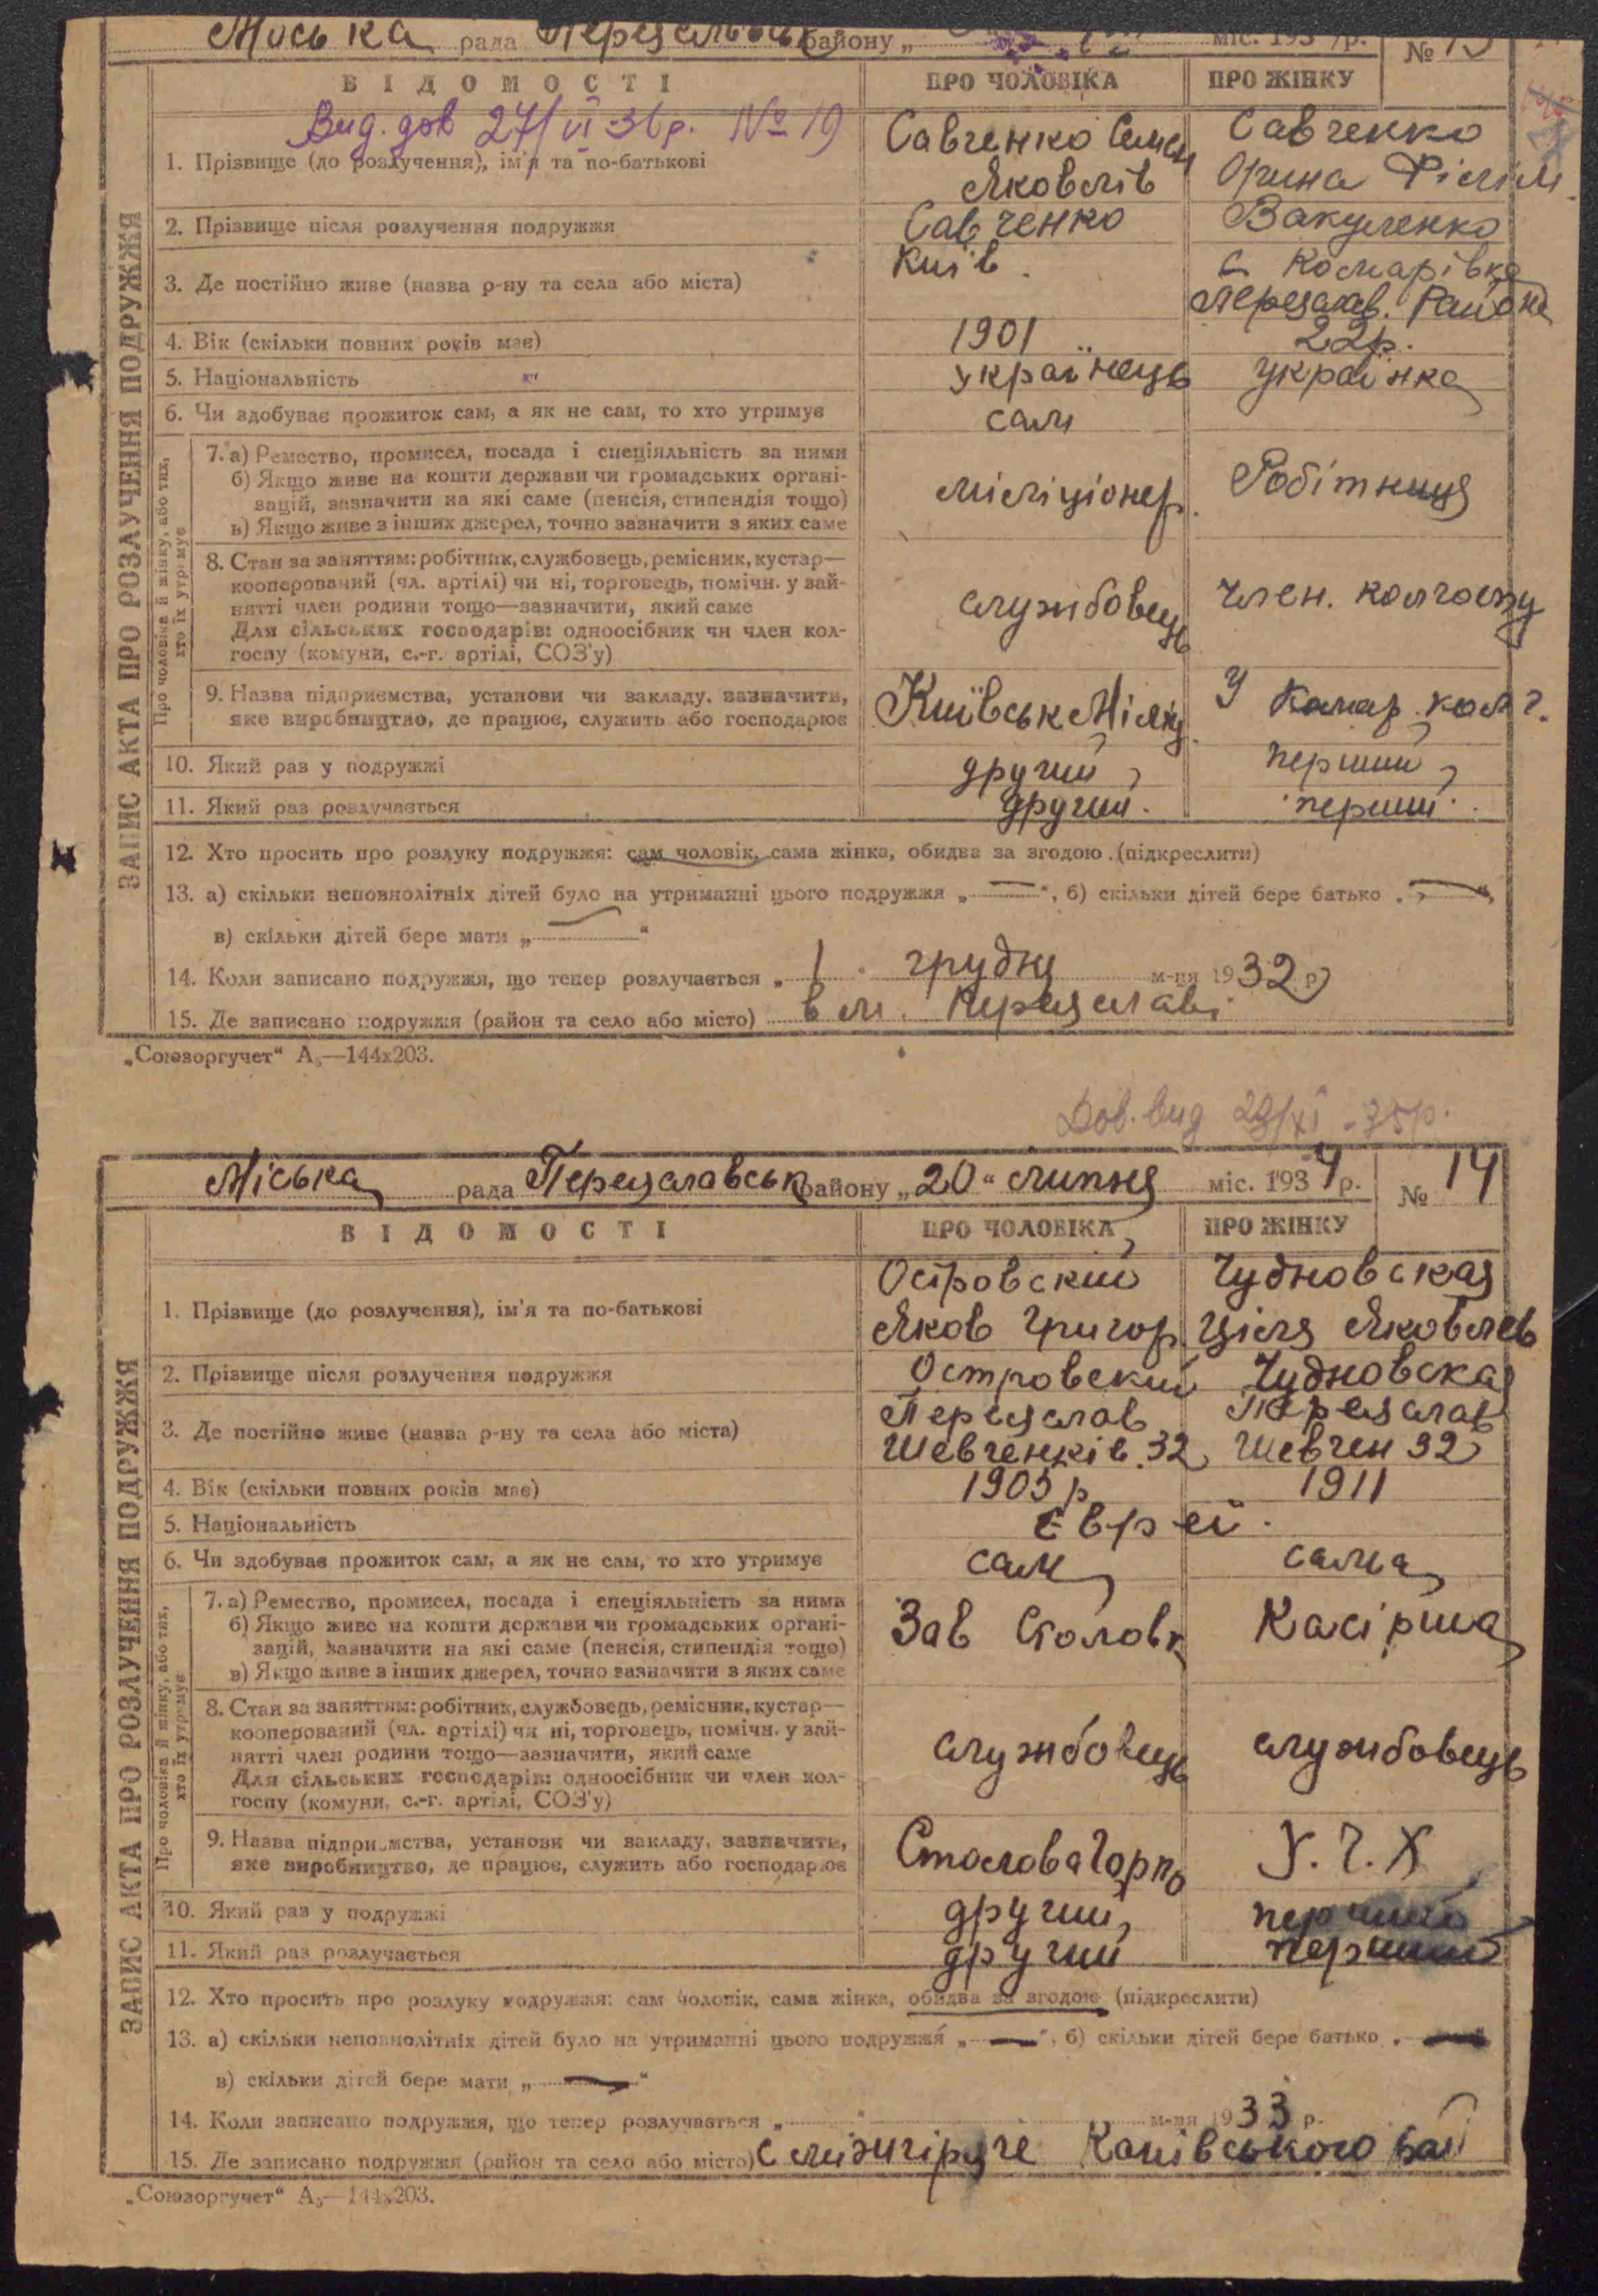 Міська рада Переяславськ району „ міс. 193 р. №
ВІДОМОСТІ ПРО ЧОЛОВІКА ПРО ЖІНКУ
Вид. дов 27/VI-36р. № 19
ЗАПИС АКТА ПРО РОЗЛУЧЕННЯ ПОДРУЖЖЯ
1. Прізвище (до розлучення), ім'я та по-батькові Савченко Семен Савченко
Яковлів Орина Філім.
2. Прізвище після розлучення подружжя Савченко Вакуленко
3. Де постійно живе (назва р-ну та села або міста) Київ. с. Комарівка
Переяслав. Району
4. Вік (скільки повних років має) 1901 22р.
5. Національність українець українка
6. Чи здобуває прожиток сам, а як не сам, то хто утримує сам
Про чоловіка й жінку, або тих,
хто їх утримує
7. а) Ремество, промисел, посада і спеціяльність за ними
б) Якщо живе на кошти держави чи громадських органі-
зацій, зазначити на які саме (пенсія, стипендія тощо) міліціонер. Робітниця
в) Якщо живе з інших джерел, точно зазначити з яких саме
8. Стан за заняттям: робітник, службовець, ремісник, кустар—
кооперований (чл. артілі) чи ні, торговець, помічн. у зай-
нятті член родини тощо—зазначити, який саме службовець член. колгоспу
Для сільських господарів: одноосібник чи член кол-
госпу (комуни, с.-г. артілі, СОЗ'у)
9. Назва підприємства, установи чи закладу, зазначити, Київськ Міліц. У Комар. колг.
яке виробництво, де працює, служить або господарює
10. Який раз у подружжі другий перший
11. Який раз розлучається другий. перший.
12. Хто просить про розлуку подружжя: сам чоловік, сама жінка, обидва за згодою. (підкреслити)
13. а) скільки неповнолітніх дітей було на утриманні цього подружжя „—“, б) скільки дітей бере батько „—“,
в) скільки дітей бере мати „—“
14. Коли записано подружжя, що тепер розлучається „ 1. грудня м-ця 1932 р.
15. Де записано подружжя (район та село або місто) в м. Переяславі.
„Союзоргучет“ А₅—144x203.
Дов. вид 23/XI-35р.
Міська рада Переяславськ району „20“ липня міс. 1934р. № 14
ВІДОМОСТІ ПРО ЧОЛОВІКА ПРО ЖІНКУ
ЗАПИС АКТА ПРО РОЗЛУЧЕННЯ ПОДРУЖЖЯ
1. Прізвище (до розлучення), ім'я та по-батькові Островский Чудновская
Яков Григор Ціля Яковлев
2. Прізвище після розлучення подружжя Островский Чудновская
3. Де постійно живе (назва р-ну та села або міста) Переяслав Переяслав
Шевченків. 32 Шевчен 32
4. Вік (скільки повних років має) 1905 р 1911
5. Національність Євреї.
6. Чи здобуває прожиток сам, а як не сам, то хто утримує сам сама
Про чоловіка й жінку, або тих,
хто їх утримує
7. а) Ремество, промисел, посада і спеціяльність за ними
б) Якщо живе на кошти держави чи громадських органі- Зав Столов. Касірша
зацій, зазначити на які саме (пенсія, стипендія тощо)
в) Якщо живе з інших джерел, точно зазначити з яких саме
8. Стан за заняттям: робітник, службовець, ремісник, кустар—
кооперований (чл. артілі) чи ні, торговець, помічн. у зай-
нятті член родини тощо—зазначити, який саме службовець службовець
Для сільських господарів: одноосібник чи член кол-
госпу (комуни, с.-г. артілі, СОЗ'у)
9. Назва підприємства, установи чи закладу, зазначити, Столова Горпо У.Ч.Х
яке виробництво, де працює, служить або господарює
10. Який раз у подружжі другий перший
11. Який раз розлучається другий перший
12. Хто просить про розлуку подружжя: сам чоловік, сама жінка, обидва за згодою (підкреслити)
13. а) скільки неповнолітніх дітей було на утриманні цього подружжя „—“, б) скільки дітей бере батько „—“
в) скільки дітей бере мати „—“
14. Коли записано подружжя, що тепер розлучається „ “ м-ця 1933 р.
15. Де записано подружжя (район та село або місто) С Канівського рай
„Союзоргучет“ А₅—144x203.